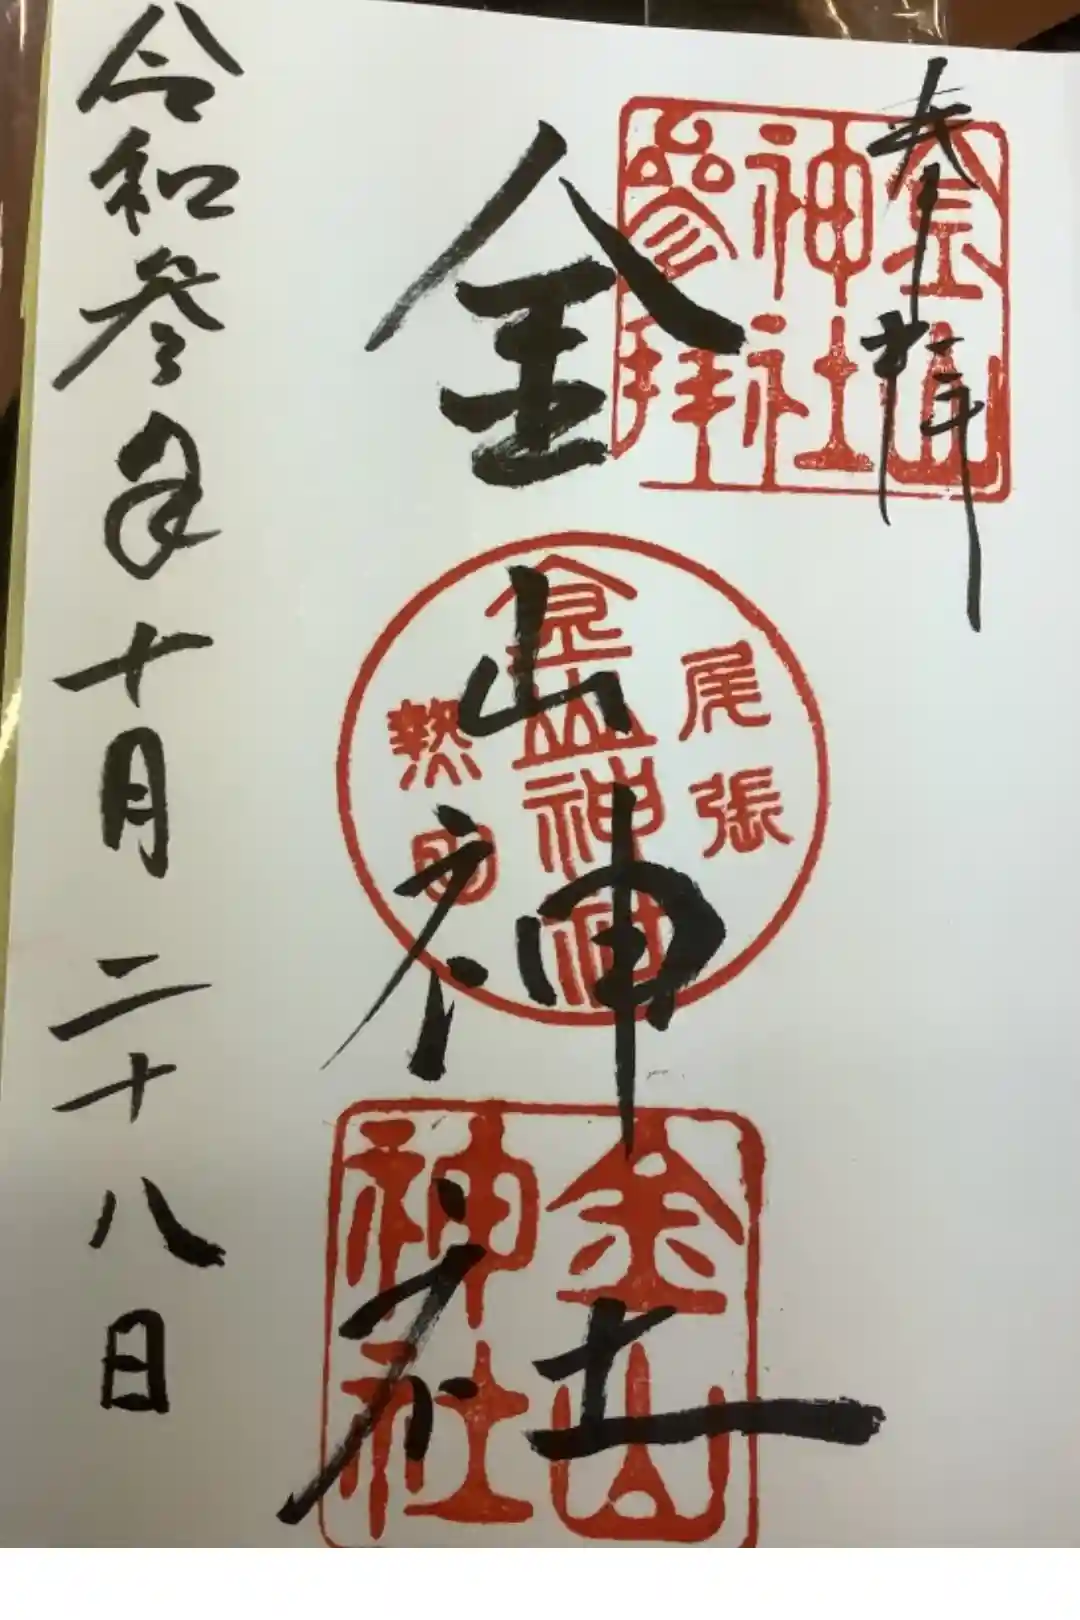 奉拝
金山神社参拝
金山神社
尾張
金山神社
熱田
金山神社
令和参年十月二十八日